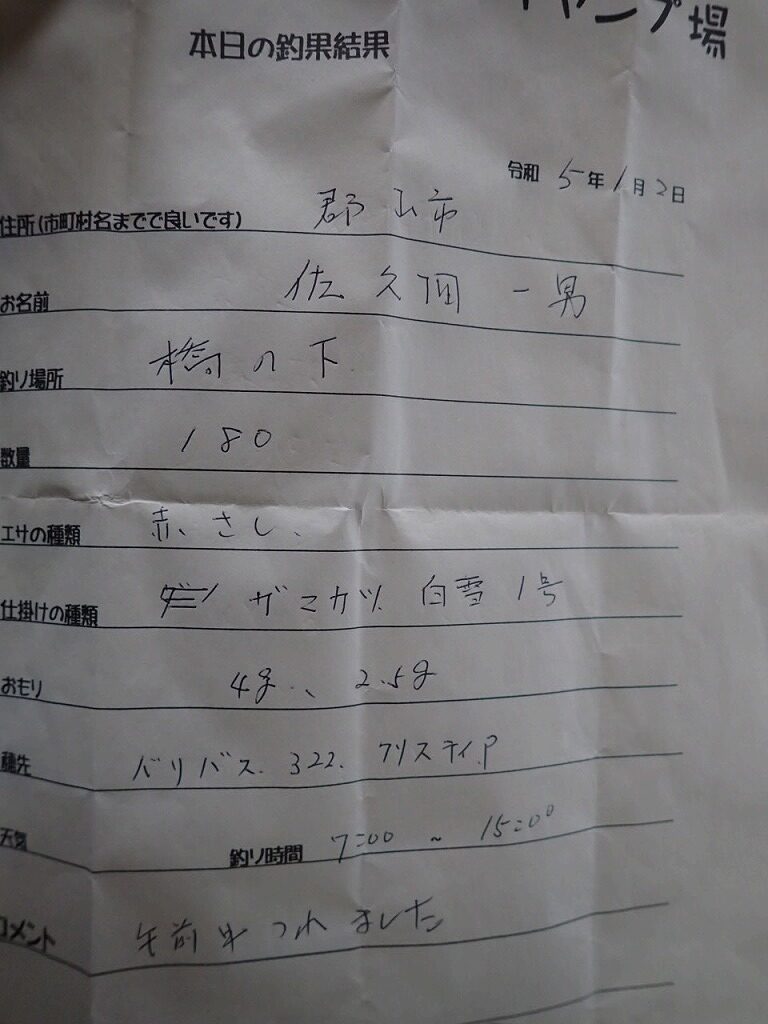 キャンプ場
本日の釣果結果
令和 5年 1月2日
住所(市町村名までで良いです) 郡山市
お名前 佐久間 一男
釣り場所 橋の下
数量 180
エサの種類 赤、さし、
仕掛けの種類 ザマカツ 白雪 1号
おもり 4g、2.5g
穂先 バリバス. 322. クリスティ.P
天気 釣り時間 7:00 ~ 15:00
コメント 午前中つれました